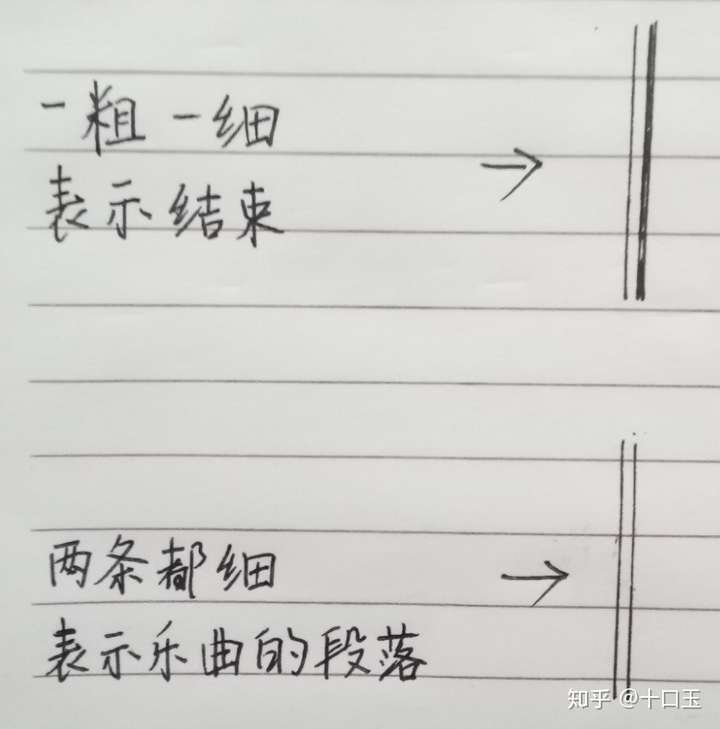 一粗一细
表示结束
两条都细
表示乐曲的段落
知乎 @十口玉